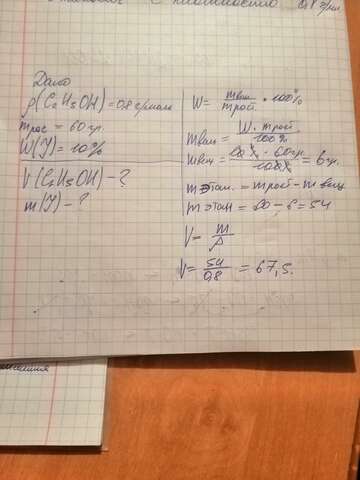 с плотностью 0,8 г/мл.
Дано
ρ(C₂H₅OH) = 0,8 г/мл
mрос = 60 гр.
W(J) = 10%
V(C₂H₅OH) - ?
m(J) - ?
W = mвещ / mраст · 100%
mвещ = W · mраст / 100%
mвещ = 10% · 60гр. / 100% = 6гр.
m этан. = mраст - m вещ
m этан = 60 - 6 = 54
V = m / ρ
V = 54 / 0,8 = 67,5.